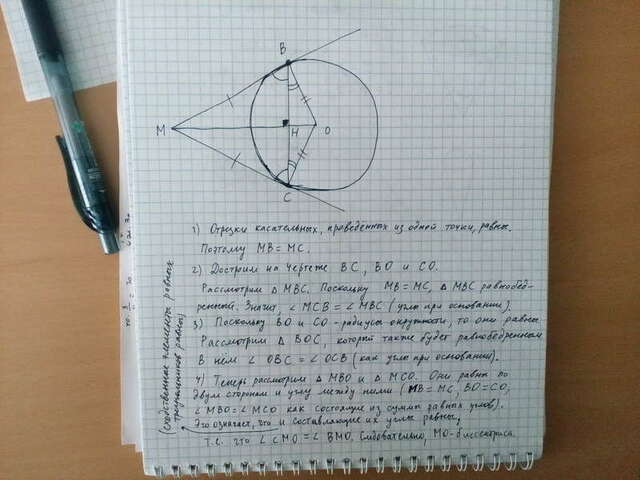 B
M
H
O
C
1) Отрезки касательных, проведенных из одной точки, равны.
Поэтому MB = MC.
2) Достроим на чертеже BC, BO и CO.
Рассмотрим △ MBC. Поскольку MB = MC, △ MBC равнобед-
ренный. Значит, ∠ MCB = ∠ MBC (углы при основании).
3) Поскольку BO и CO - радиусы окружности, то они равны.
Рассмотрим △ BOC, который также будет равнобедренным
В нём ∠ OBC = ∠ OCB (как углы при основании).
4) Теперь рассмотрим △ MBO и △ MCO. Они равны по
двум сторонам и углу между ними (MB = MC, BO = CO,
∠ MBO = ∠ MCO как состоящие из суммы равных углов).
Это означает, что и составляющие их углы равны,
т.е. что ∠ CMO = ∠ BMO. Следовательно, MO - биссектриса.
элементы равных
треугольников равны)